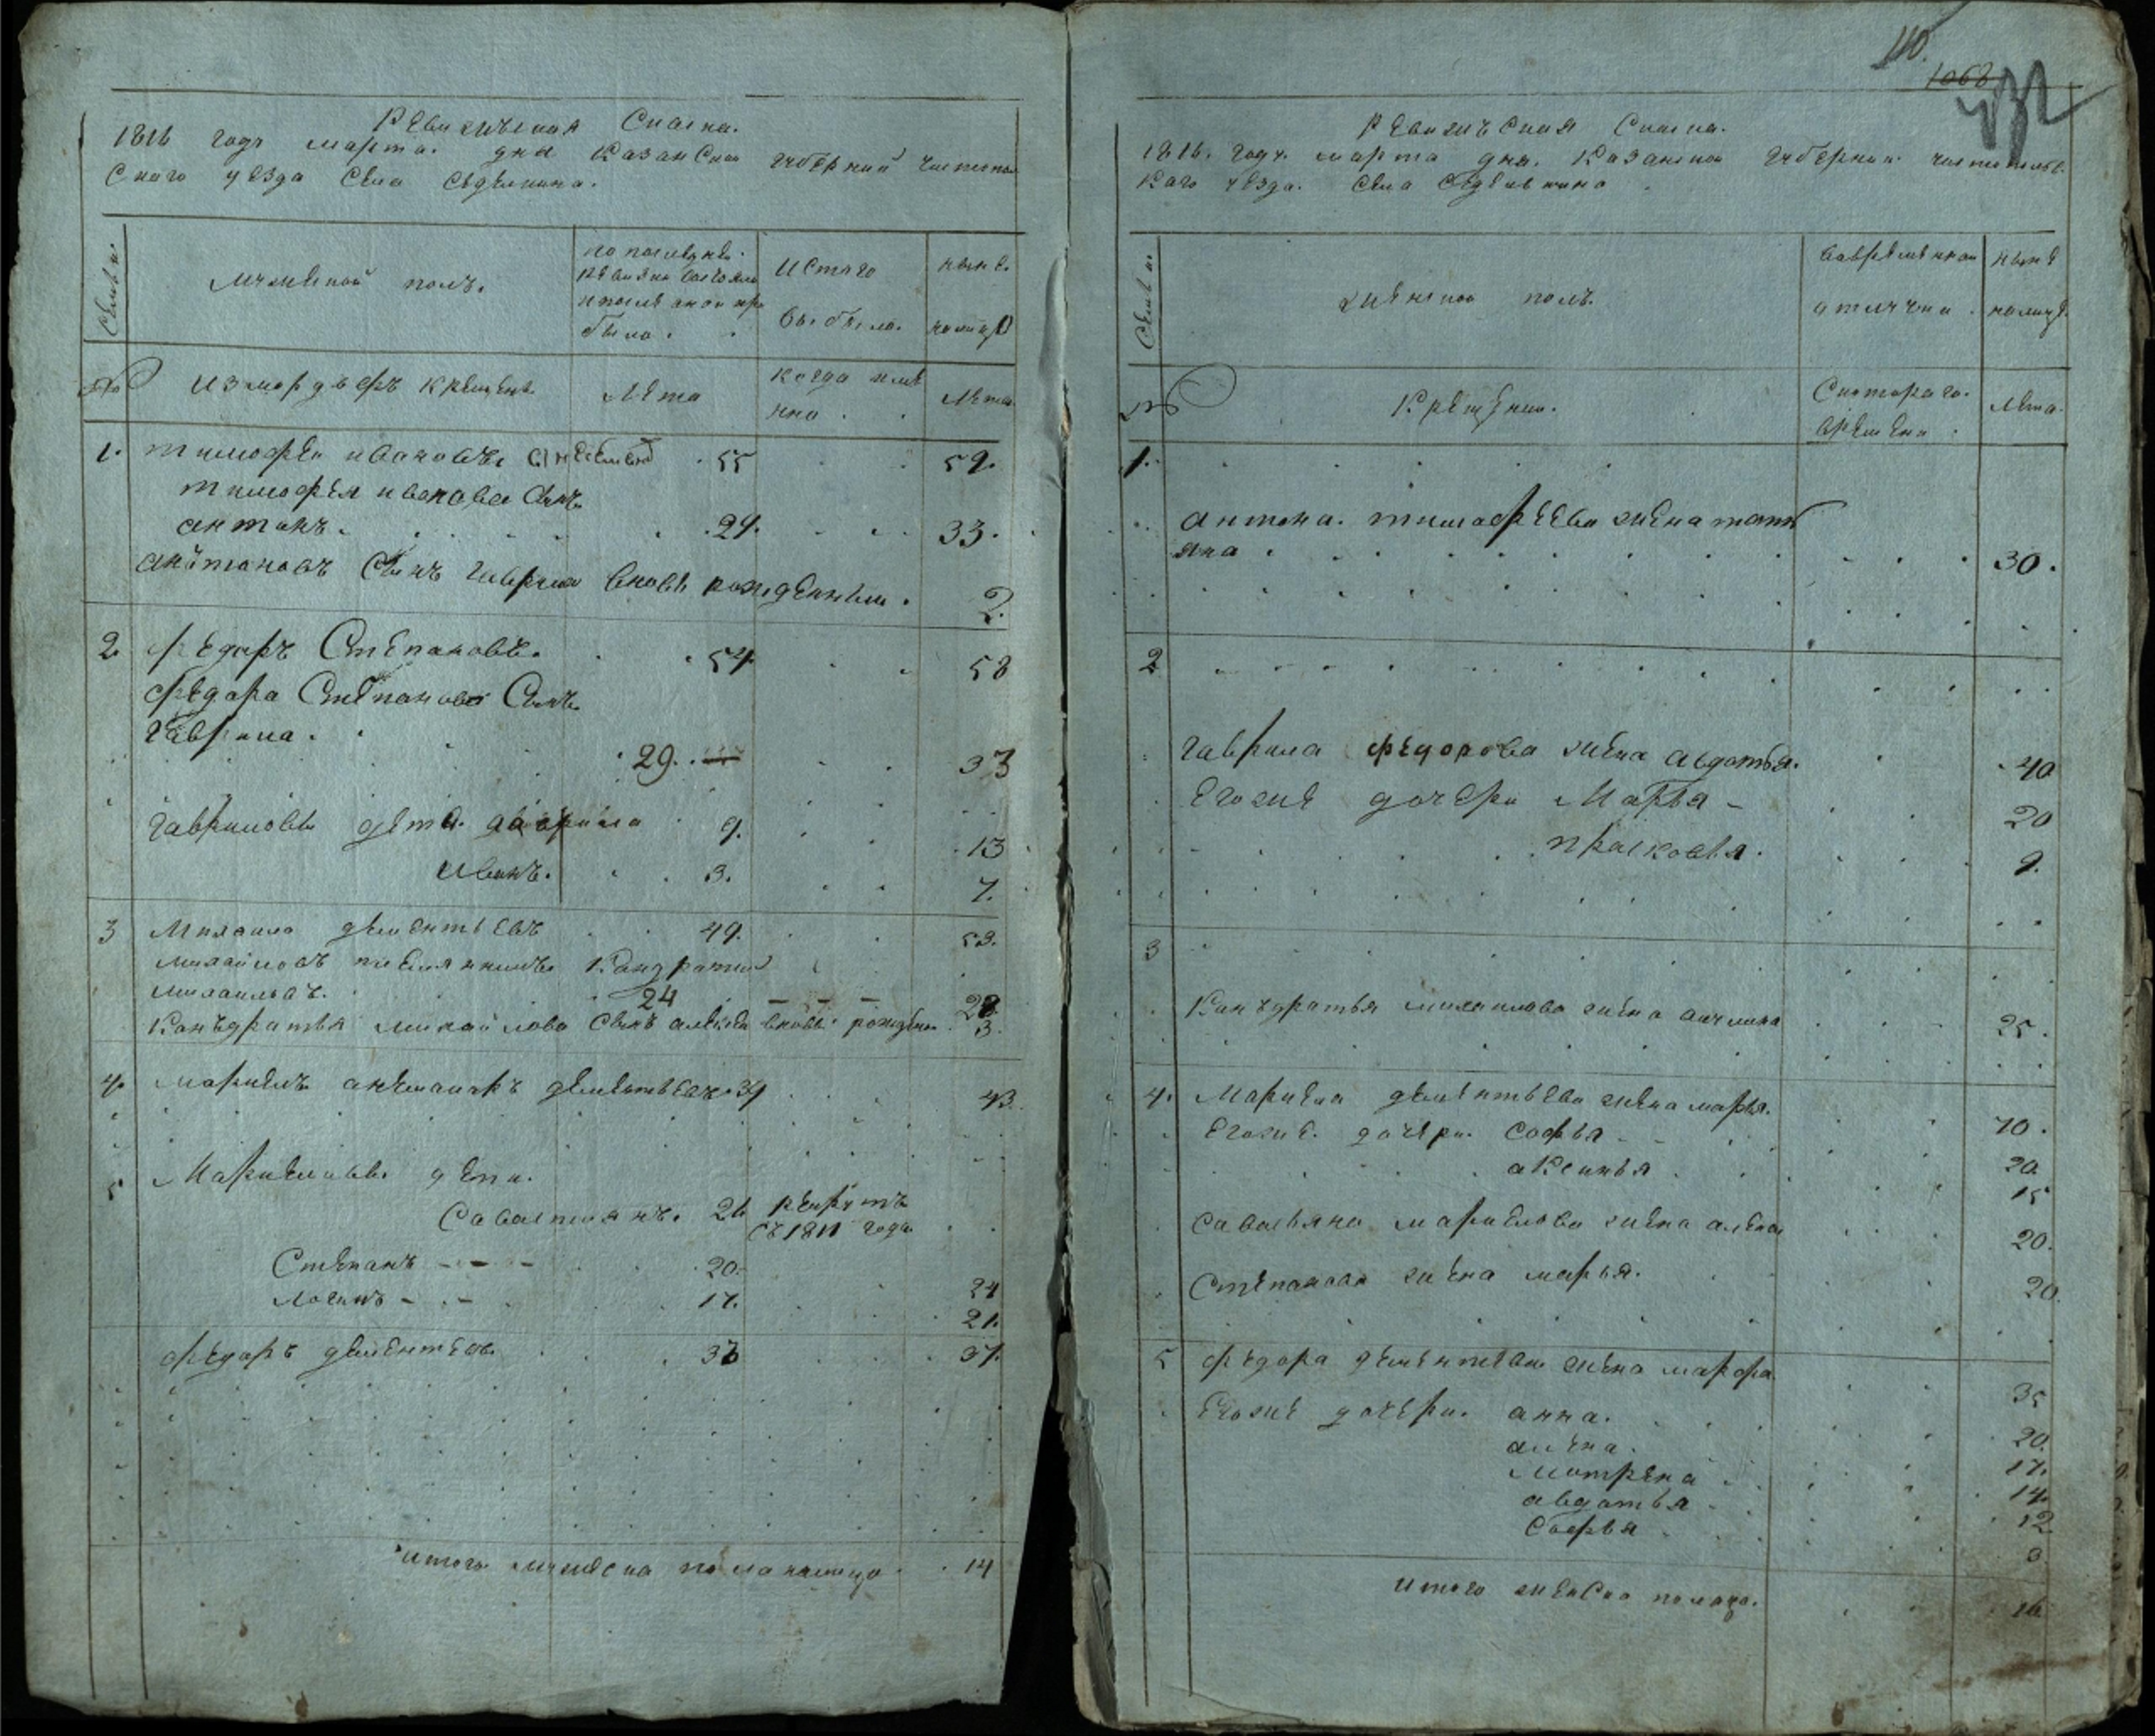 Ревижская Скаска.
1816 годъ марта. дня Казанской губерний чистопол
Скаго уезда села Седелкина.
Семьи
мужеской полъ.
по последней
ревизий састояло
и после оной при
было.
Из того
выбыло.
ныне
на лицо
№
из мордвъ крещене
Лета
когда име
нно.
Лета.
1. тимофеи ивановъ 55 59.
тимофея иванова Сынъ
антонъ. 29. 33.
анътоновъ Сынъ гаврила вновь рожденныи. 2.
2 Федоръ Степановъ. 54 58
федора Степанова Сынъ
гаврила.
29. 33
гавриловы дети. гаврила 9. 13
иванъ. 3. 7.
3 Михаила дементьевъ 49. 53.
михайловъ племянникъ Кандратии
михаиловъ. 24 28
Конъдратья михайлова Сынъ алексеи вновь рожден. 3.
4. маркелъ дементьевъ. 39 43.
5 Маркеловы дети.
Савастиянъ. 26 рекрутъ
съ 1811 года
Степанъ 20. 24
Логинъ 17. 21.
федоръ дементевъ. 33 37.
итого мужеска пола налицо 14
110.
1068
432
Ревижская Скаска.
1816. годъ. марта дня. Казанской губернии чистопольс
каго уезда. села Седелькина
Семьи
женской полъ.
вовременной
отлучки
ныне
налицо.
№
Крещении.
С которого
времени
лета.
1.
антона. тимофеева жена тать
яна 30.
2
гаврила федорова жена авдотья. 40
Егоже дочери Марья 20
прасковья. 9.
3
Конъдратья михаилова жена акулина 25.
4. Маркела дементьева жена марья. 40.
Егоже. дочери. Софья 20.
аксинья 15
савостьяна маркелова жена алена 20.
степанова жена марья. 20.
5 федора дементева жена марфа 35
Егоже дочери. анна. 20.
алена. 17.
Матрена 14.
авдотья 12
Софья 3.
итого женска пола. 16